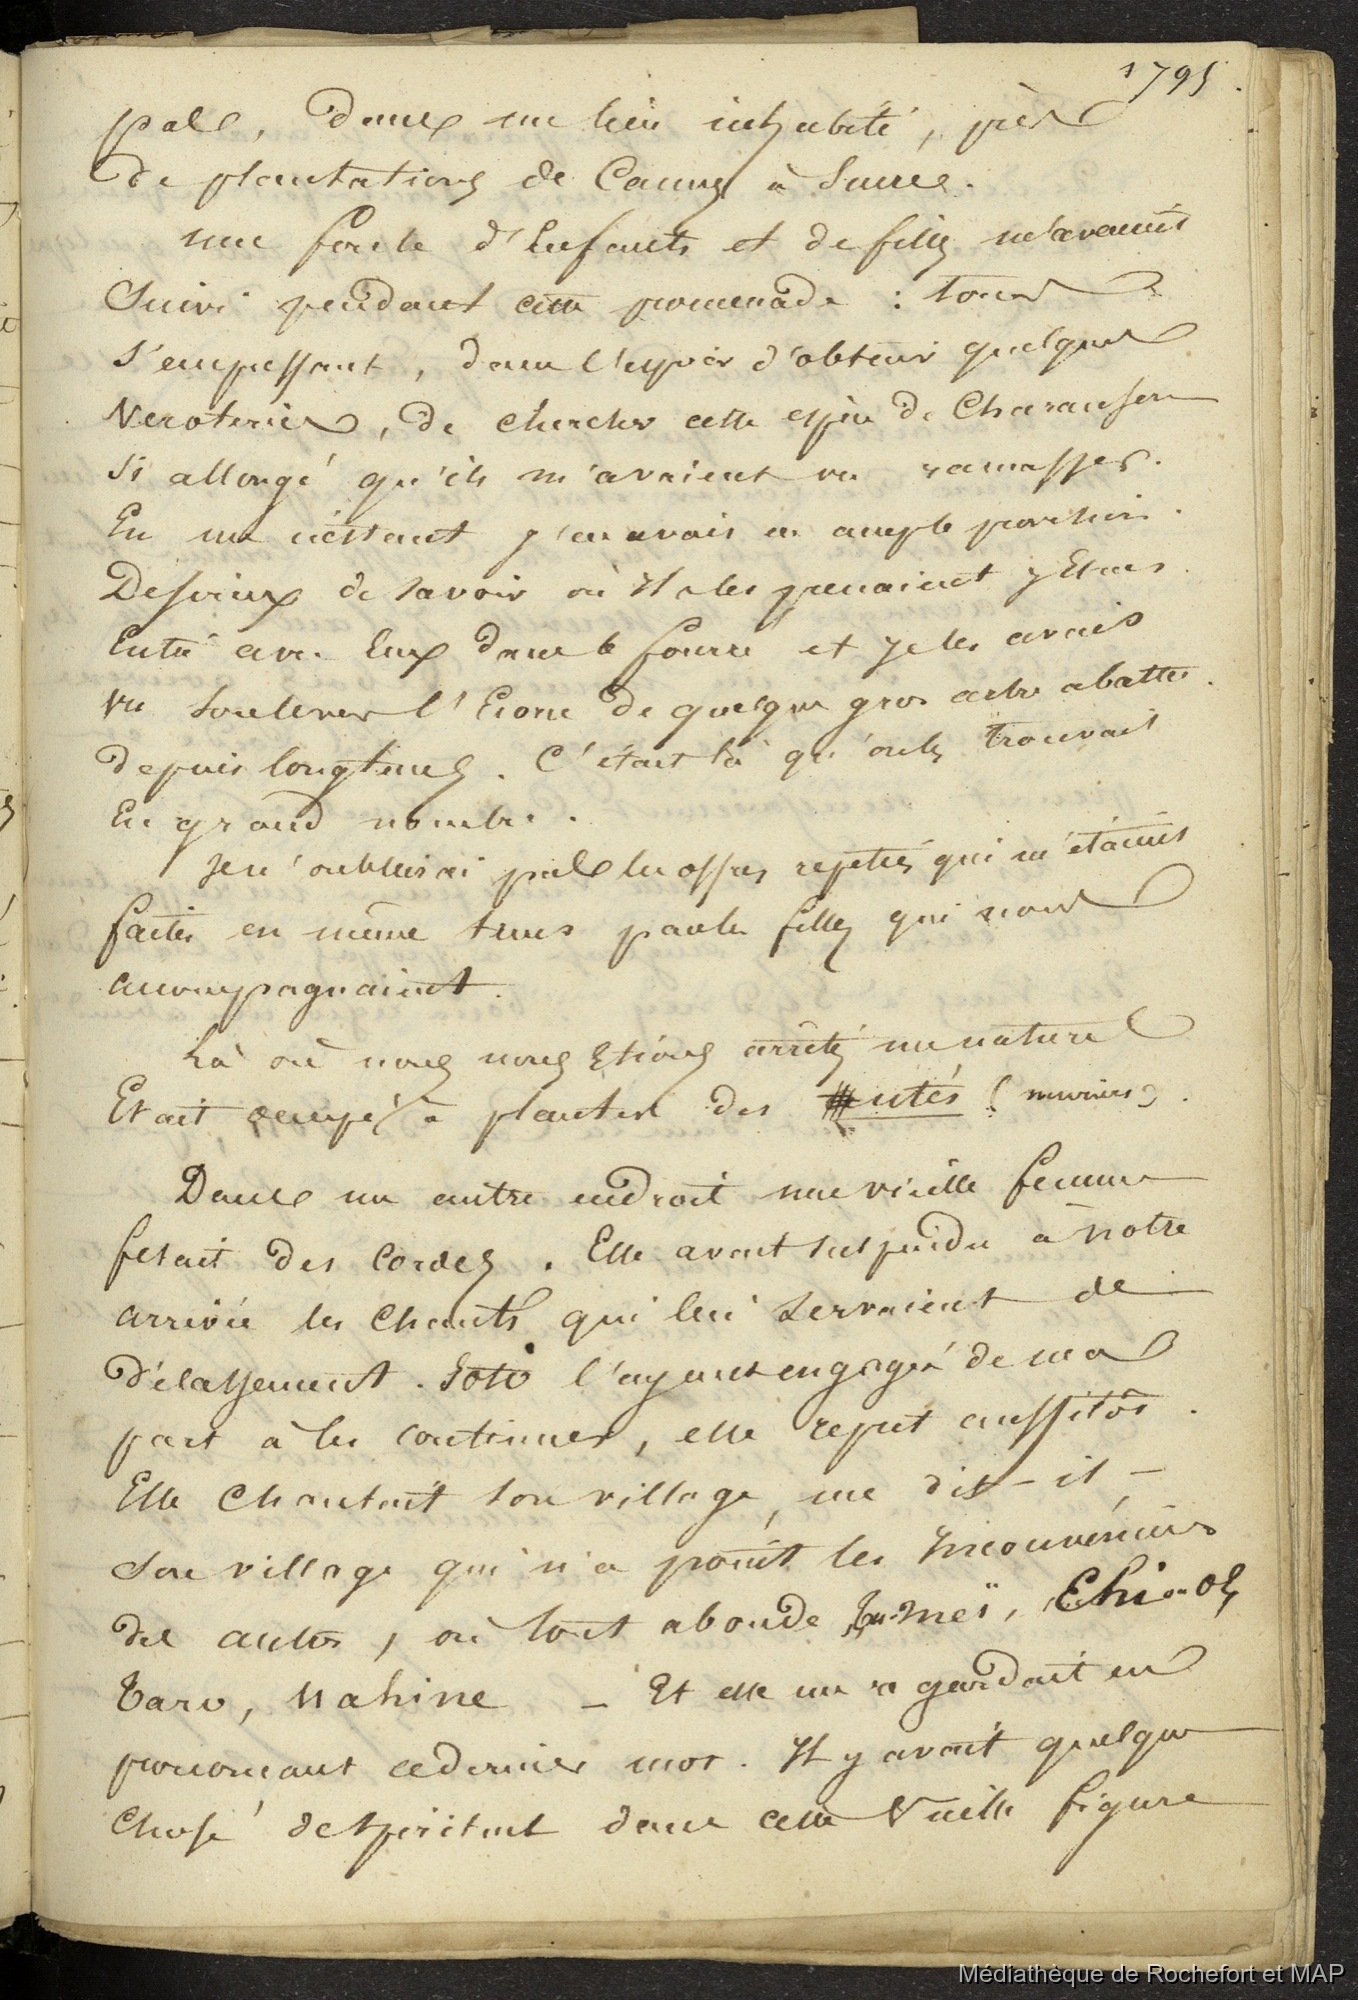 1795.
pale, dans un lieu inhabité, près
de plantations de Cannes à Sucre.
une foule d'Enfants et de filles m'avaient
Suivi pendant cette promenade : tous
s'empressant, dans l'espoir d'obtenir quelques
Veroteries, de chercher cette espèce de Charanson
si allongé qu'ils m'avaient vu ramasser.
En un instant j'en avais eu ample provision.
Desireux de savoir où ils les prenaient j'Etais
Entré avec Eux dans le fourré et je les avais
vu soulever l'Ecorce de quelque gros arbre abattu
depuis longtems. C'était là qu'on les trouvait
En grand nombre.
Je n'oublierai pas les offres repetées qui m'étaient
faites en même tems par les filles qui nous
accompagnaient.
Là où nous nous Etions arrêtés un naturel
Etait occupé à planter des utés (muriers).
Dans un autre endroit une vieille femme
fesait des Cordes. Elle avait suspendu à notre
arrivée les Chants qui lui servaient de
délassement. Toto l'ayant engagée de ma
part à les continuer, elle reprit aussitôt.
Elle Chantait son village, me dit-il -
Son village qui n'a point les Inconvéniens
des autres, où tout abonde meï, Ehi
Taro, Mahine - Et elle me regardait en
prononçant ce dernier mot. Il y avait quelque
Chose de spirituel dans cette vieille figure
Médiathèque de Rochefort et MAP